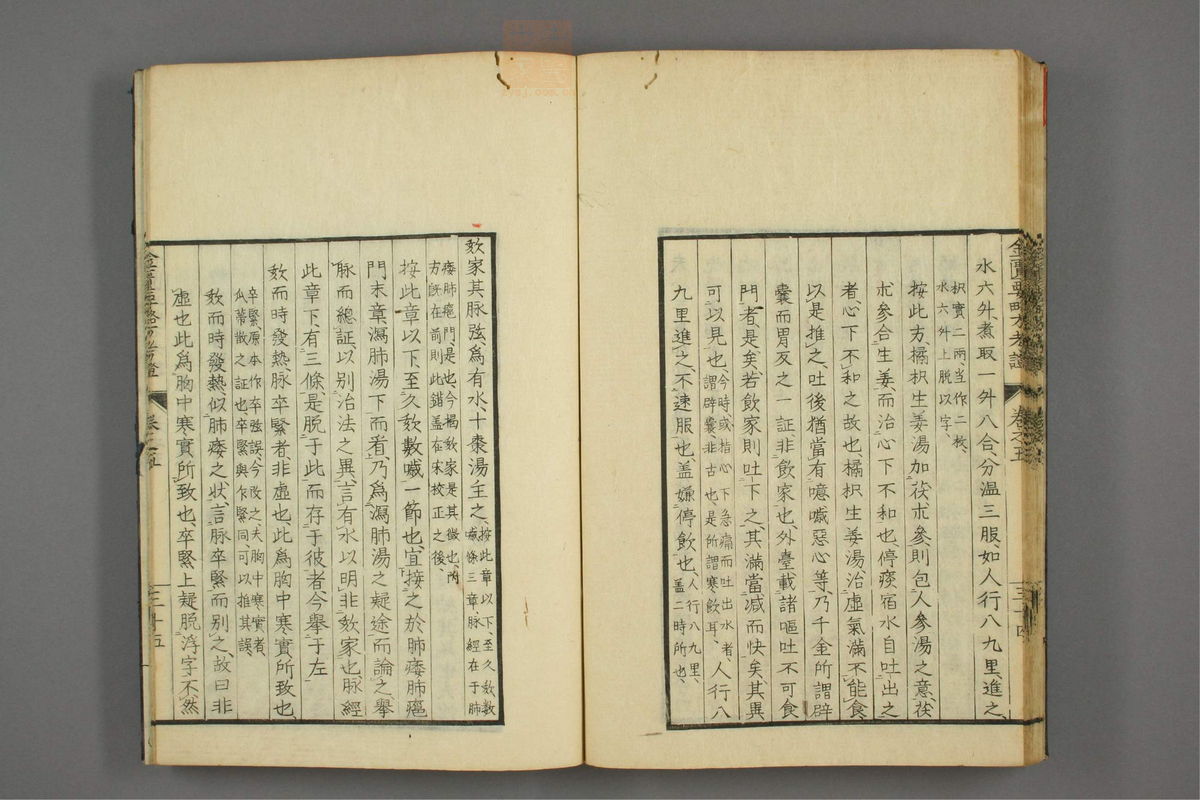 水六外、煮取一外八合、分温三服、如人行八九里、進之、
枳實二两当作二枚、
水六外上脱以字、
按此方、橘枳生姜湯加茯朮参、則包人参湯之意茯
朮参合生姜而治心下不和也、停痰宿水自吐出之
者、心下不和之故也、橘枳生姜湯、治虚氣滿不能食、
以是推之、吐後猶當有噫噦惡心等、乃千金所謂辟
囊而胃反之一証、非飲家也、外臺載諸嘔吐不可食
門者、是矣、若飲家則吐下之、其滿當减而快矣、其異
可以見也、
今時、或指心下急痛而吐出水者、
謂辟囊、非古也、是所謂寒飲耳、
人行八
九里進之、不速服也、盖嫌停飲也、
人行八九里、
盖二時所也、
金匱要略方考證
卷之五
三十四
欬家其脉弦、爲有水、十棗湯主之、
按此章以下、至久欬数
噦條三章、脉經在于肺
痿肺癰門、是也、今揭欬家是其做也、内
方旣在前則此錯盖在宋校正之後、
按此章以下、至久欬數噦一節也、宜接之於肺痿肺癰
門末章、瀉肺湯、下而看、乃爲瀉肺湯之疑途而論之、舉
脉而總証、以别治法之異、言有水以明非欬家也、脉經
此章下、有三條、是脱于此而存于彼者、今舉于左
欬而時發熱、脉卒緊者、非虚也、此爲胸中寒實所致也
卒緊原本作卒弦誤、今改之、夫胸中寒實者、
瓜蒂散之証也、卒緊與乍緊同可以推其誤、
欬而時發熱、似肺痿之狀、言脉卒緊而别之、故曰非
虚也、此爲胸中寒實所致也、卒緊上疑脱浮字、不然
金匱要略方考證
卷之五
三十五